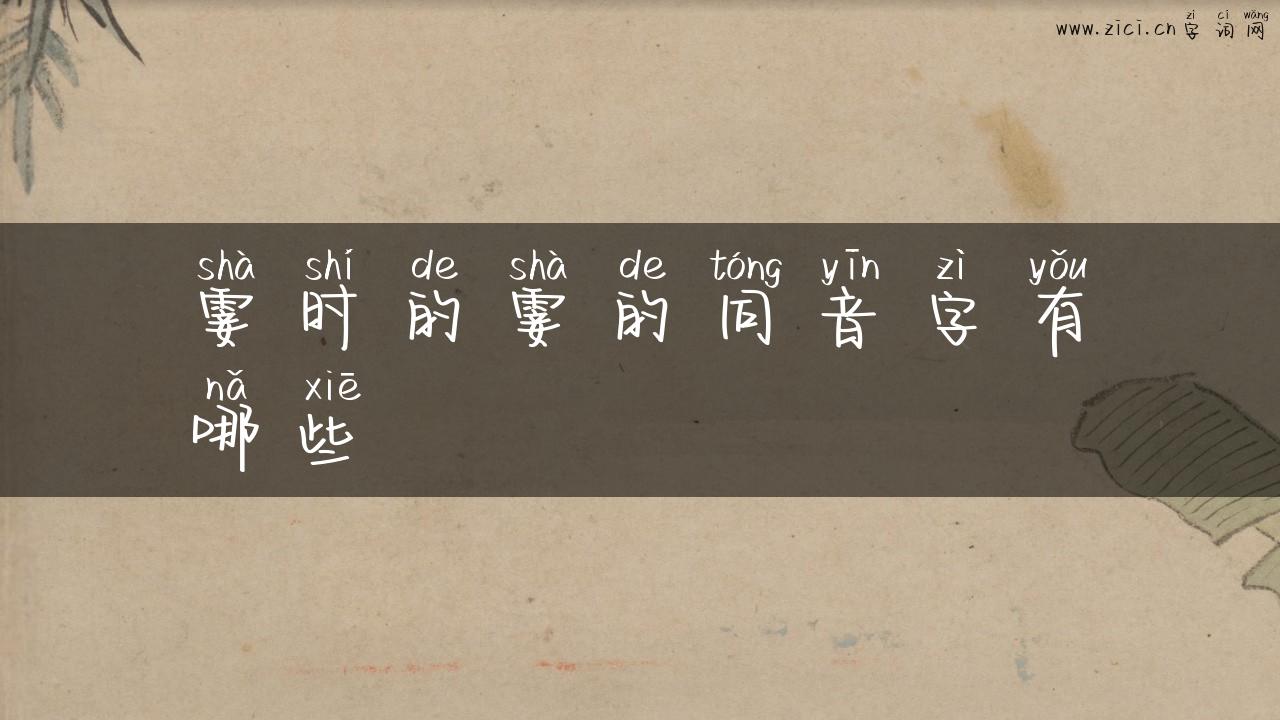 zì cí wǎng
www.zici.cn 字 词 网
shà shí de shà de tóng yīn zì yǒu
霎 时 的 霎 的 同 音 字 有
nǎ xiē
哪 些